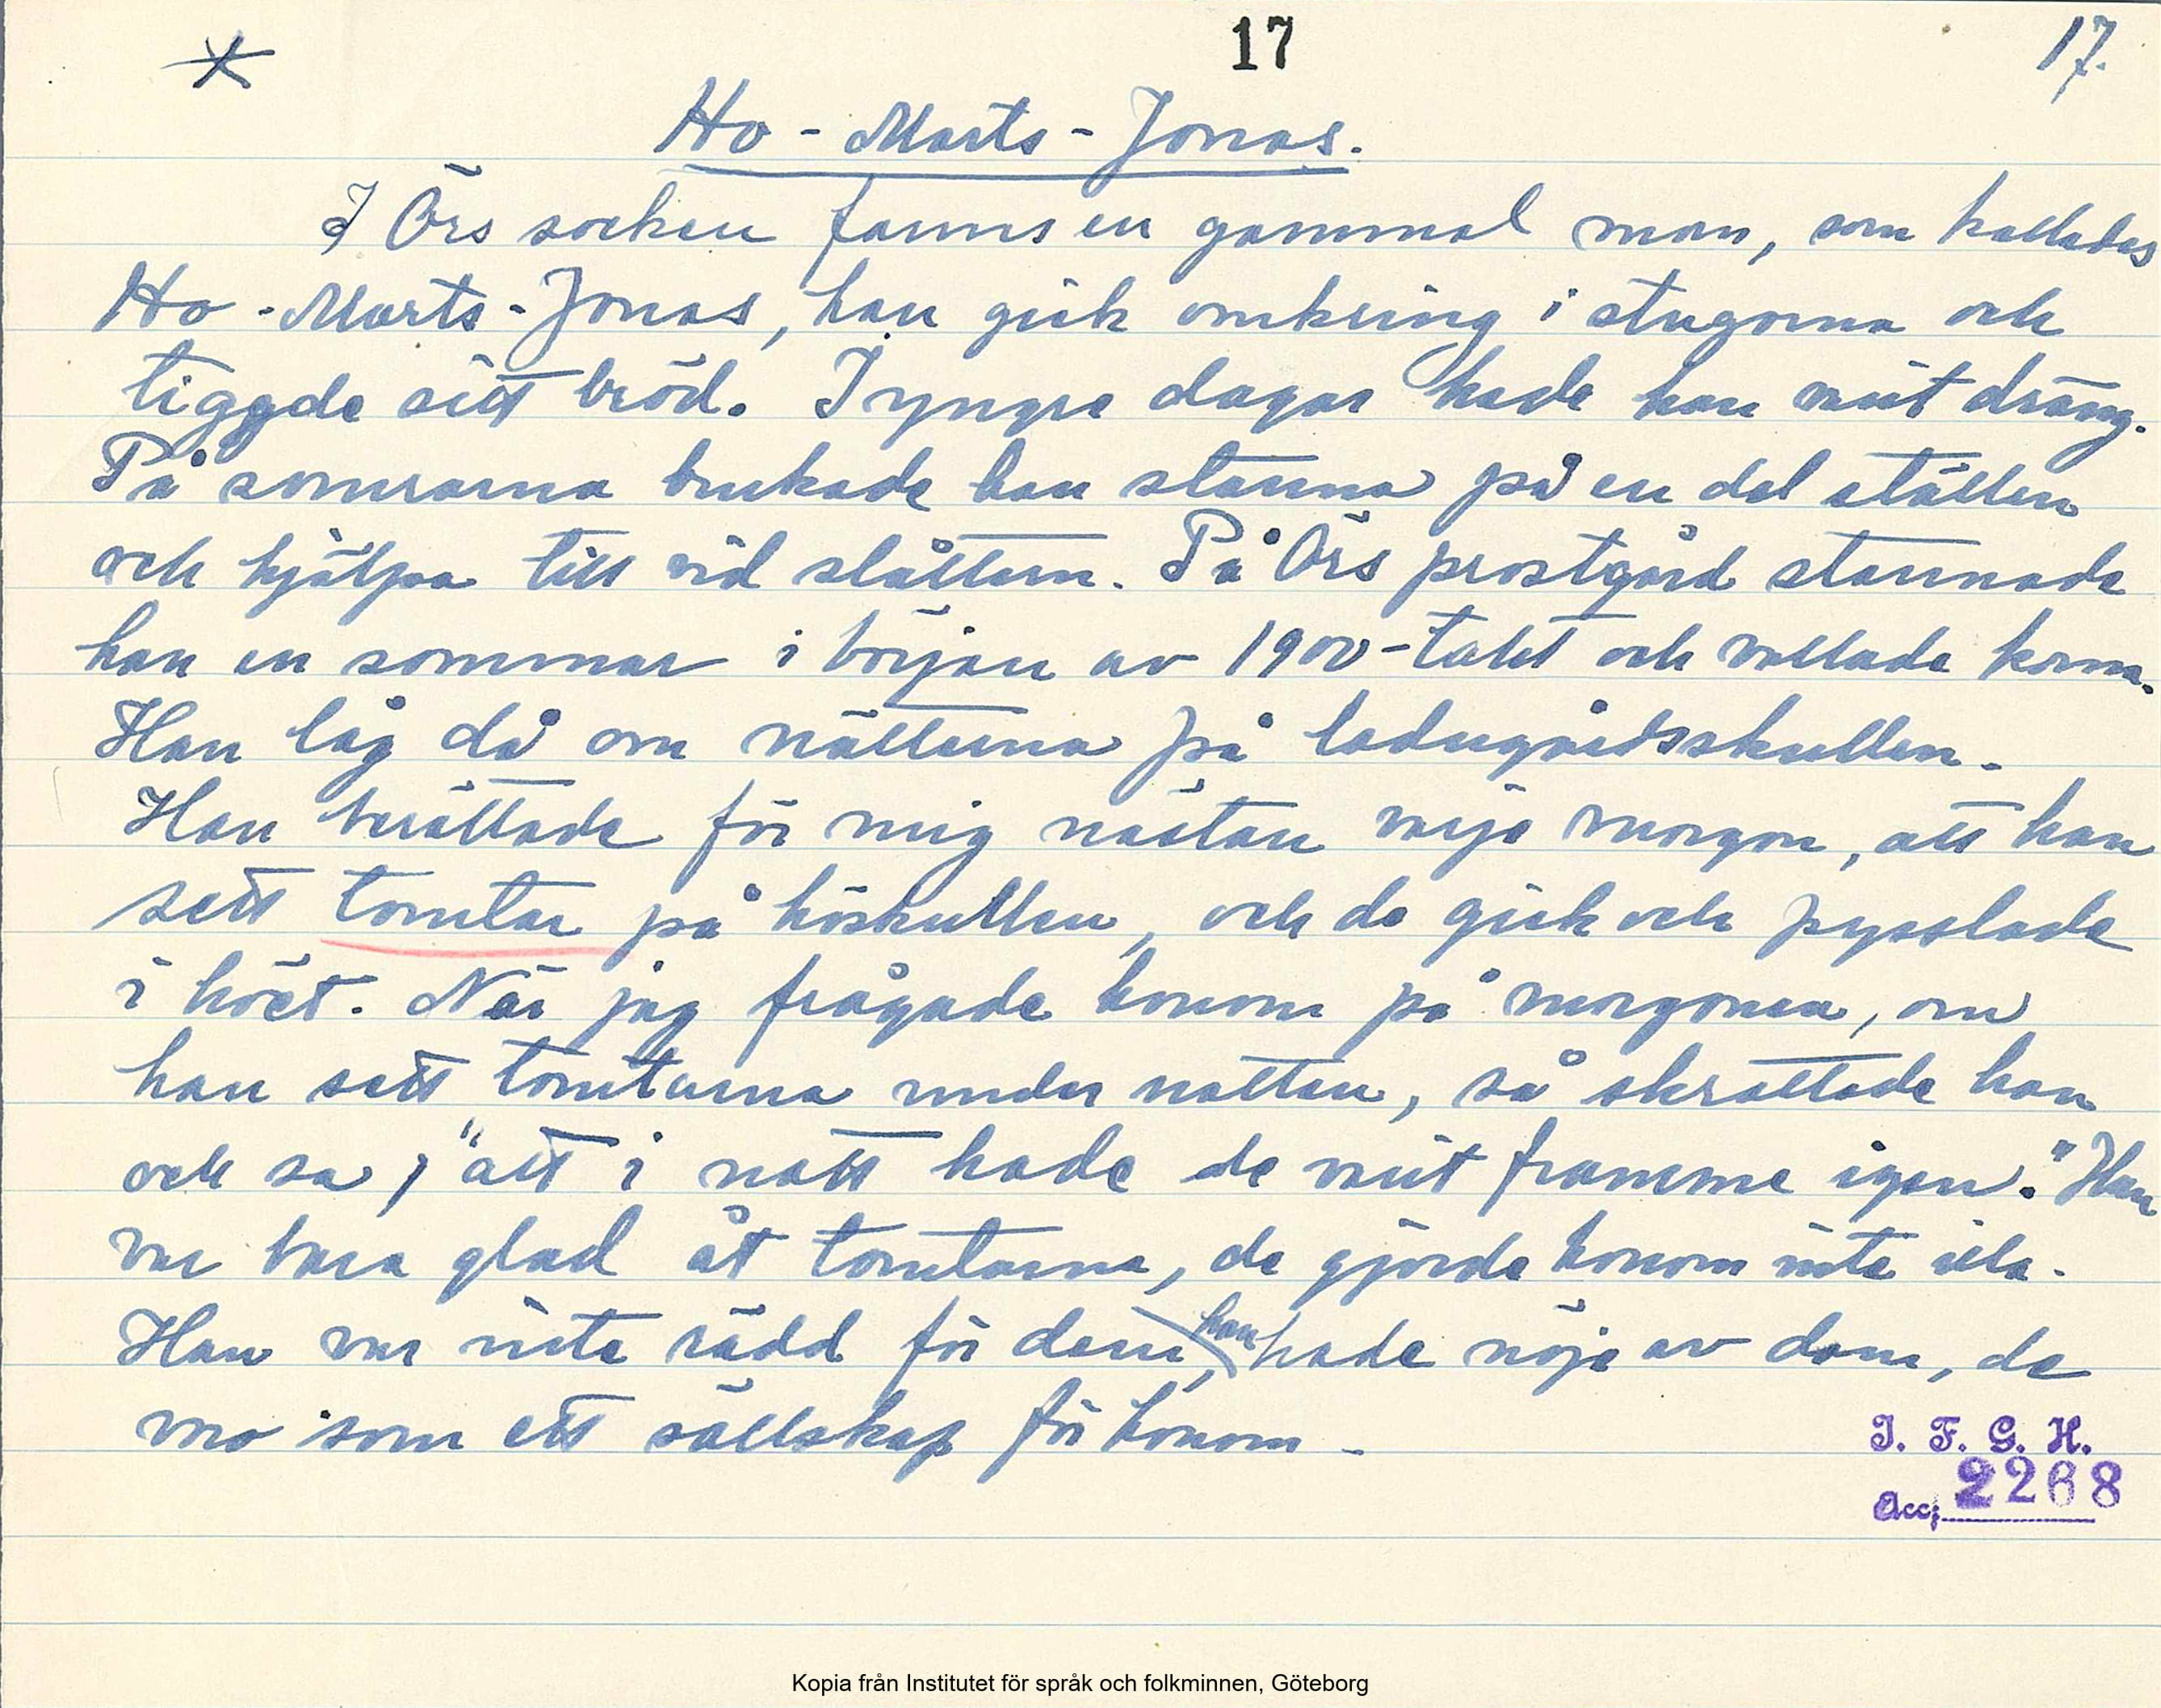 17 17.
Ho-Marts-Jonas.
I Örs socken fanns en gammal man, som kallades
Ho-Marts-Jonas, han gick omkring i stugorna och
tiggde sitt bröd. I yngre dagar hade han vait dräng.
På somrarna brukade han stanna på en del ställen
och hjälpa till vid slåttern. På Örs prostgård stannade
han en sommar i början av 1900-talet och vallade korna.
Han låg då om nätterna på ladugårdsskullen.
Han berättade för mig nästan varje morgon, att han
sett tomtar på höskullen, och de gick och pysslade
i höet. När jag frågade honom på morgonen, om
han sett tomtarna under natten, så skrattade han
och sa, "att i natt hade de vait framme igen." Han
var bara glad åt tomtarna, de gjorde honom inte illa.
Han var inte rädd för dem, han hade nöje av dem, de
voro som ett sällskap för honom.
I. F. G. H.
Acc. 2268
Kopia från Institutet för språk och folkminnen, Göteborg